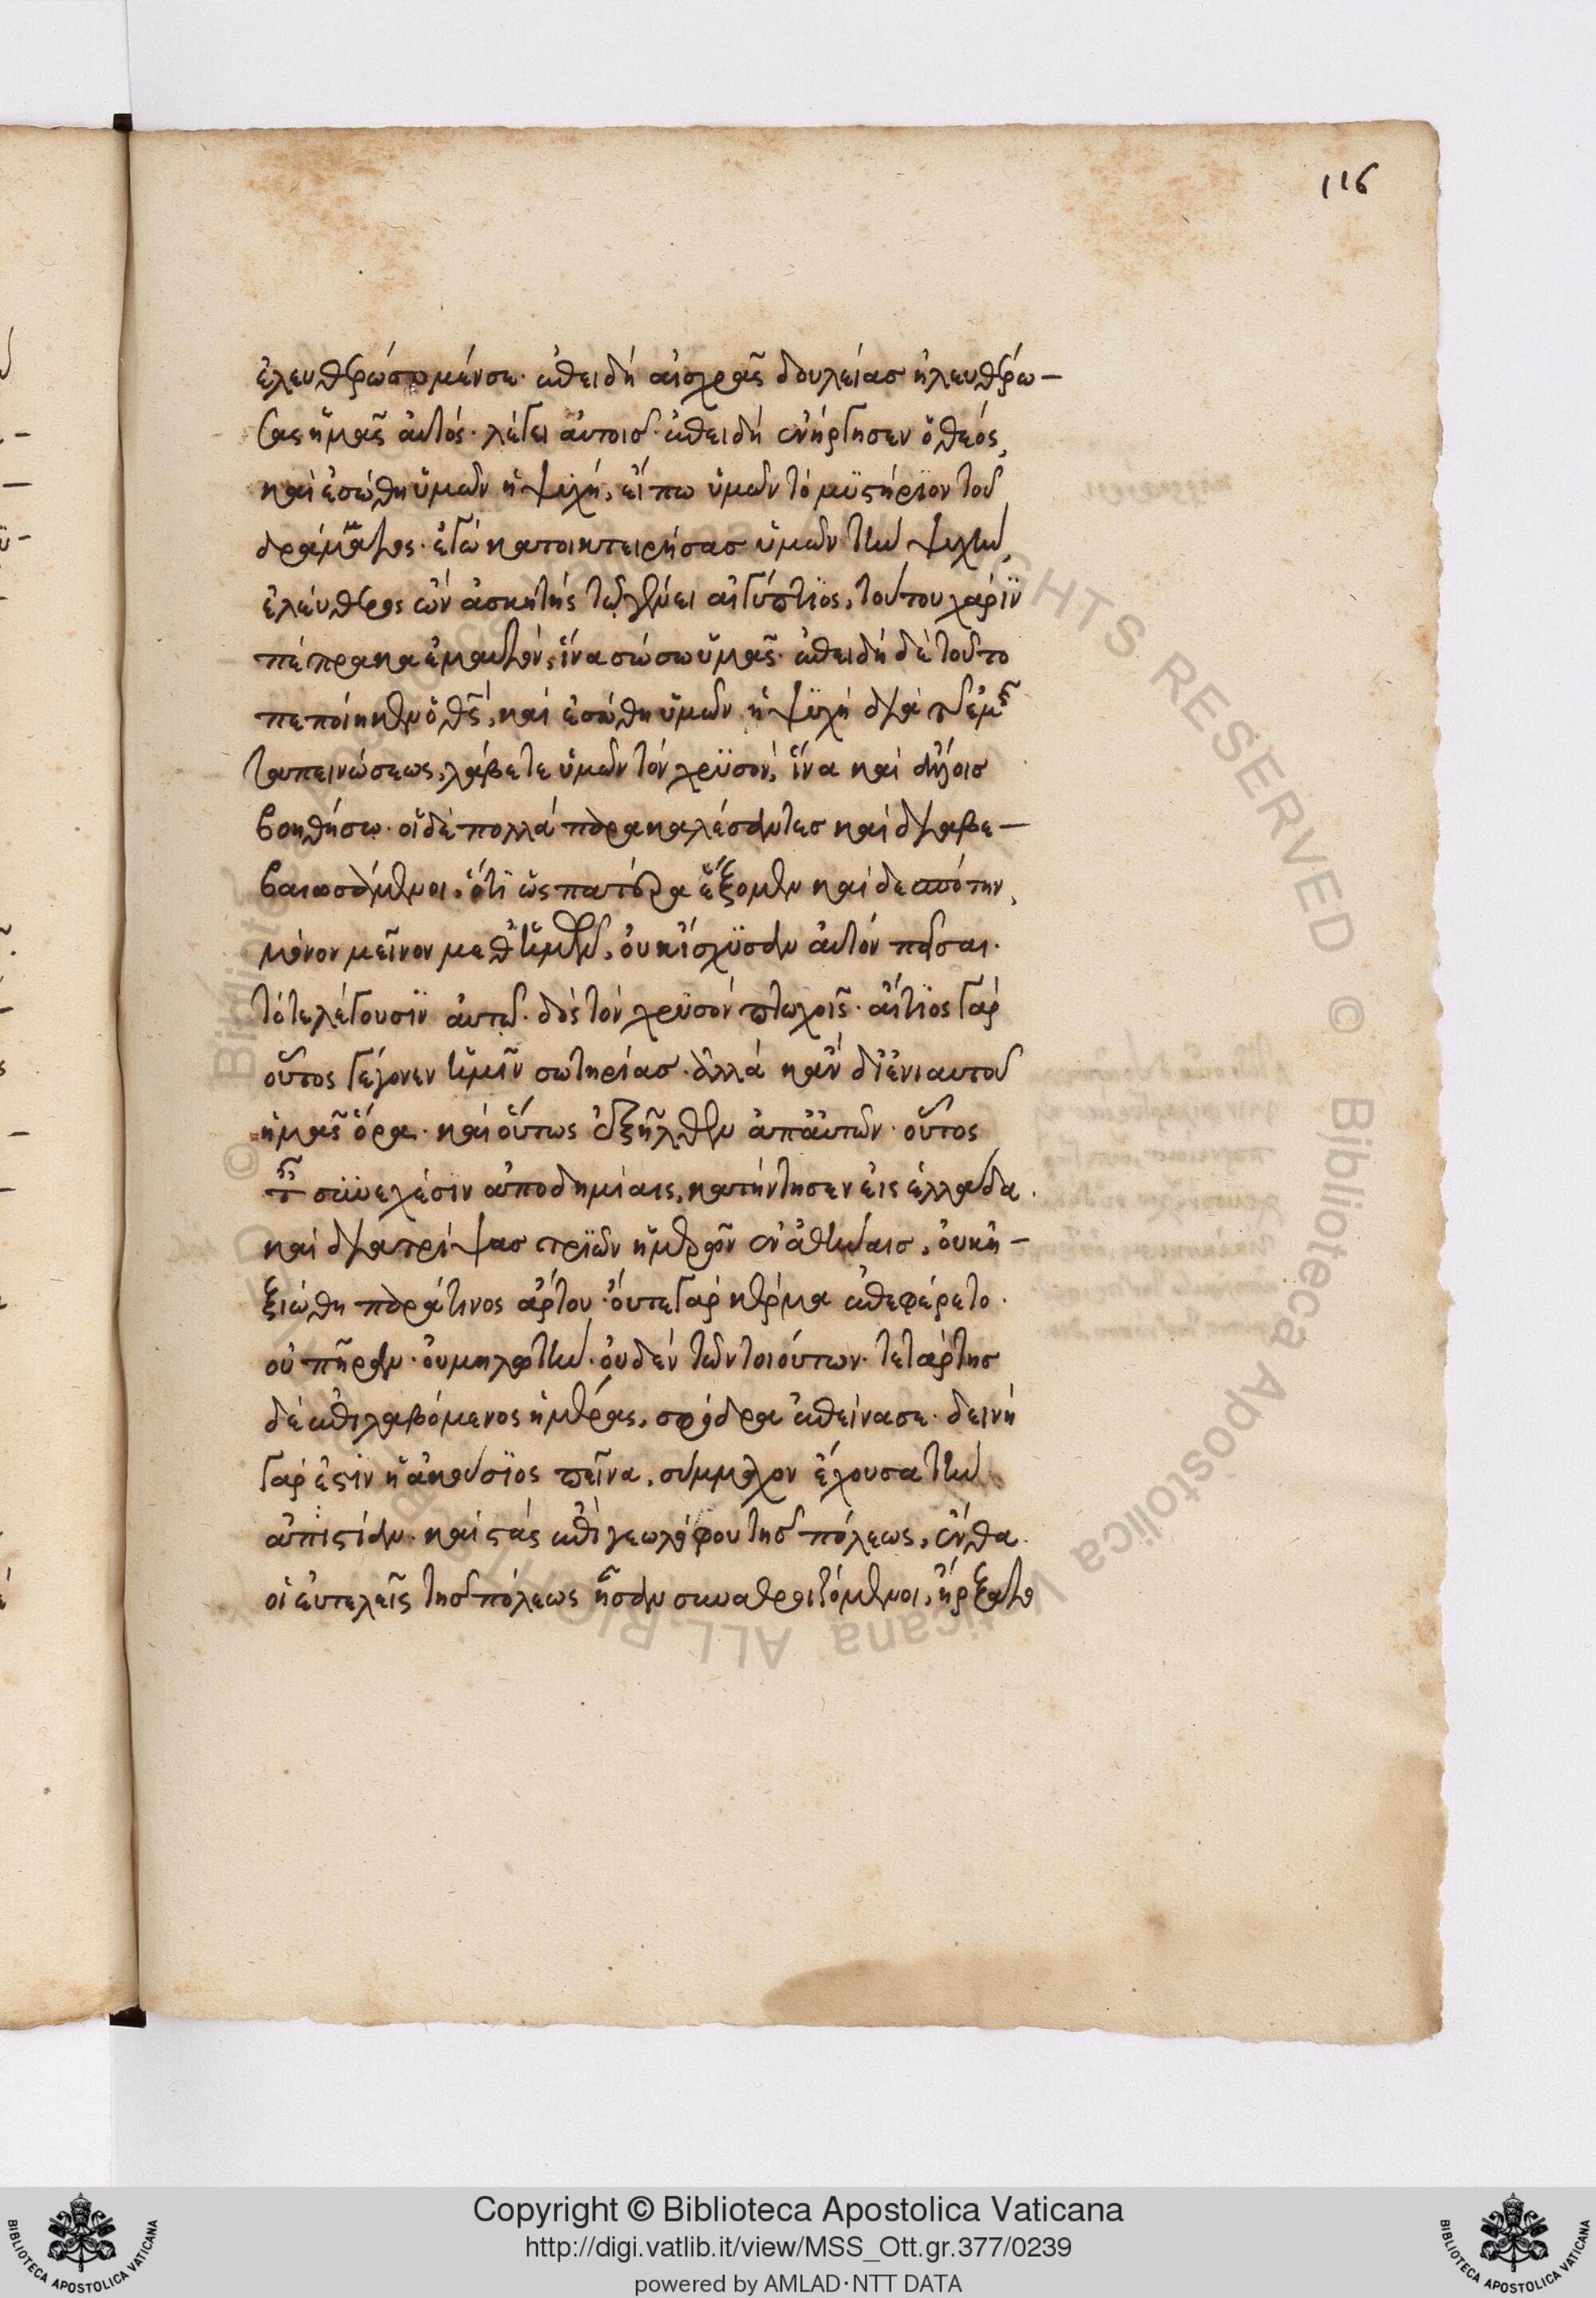 116
ἐλευθερώσωμέν σε· ἐπειδὴ αἰσχρᾶς δουλείας ἠλευθέρω-
σας ἡμᾶς αὐτός· λέγει αὐτοῖς· ἐπειδὴ ἐνήργησεν ὁ θεός,
καὶ ἐσώθη ὑμῶν ἡ ψυχή, εἴπω ὑμῶν τὸ μυστήριον τοῦ
δράματος· ἐγὼ κατοικτειρήσας ὑμῶν τὴν ψυχήν,
ἐλεύθερος ὢν ἀσκητὴς τῷ γένει αἰγύπτιος, τούτου χάριν
πέπρακα ἐμαυτόν, ἵνα σώσω ὑμᾶς· ἐπειδὴ δὲ τοῦτο
πεποίηκεν ὁ θς, καὶ ἐσώθη ὑμῶν ἡ ψυχὴ διὰ τῆς ἐμῆς
ταπεινώσεως, λάβετε ὑμῶν τὸν χρυσόν, ἵνα καὶ ἄλλοις
βοηθήσω· οἱ δὲ πολλὰ παρακαλέσαντες καὶ διαβε-
βαιωσάμενοι, ὅτι ὡς πατέρα ἕξομεν καὶ δεσπότην,
μόνον μεῖνον μεθ' ἡμῶν, οὐκ ἴσχυσαν αὐτὸν πεῖσαι.
τότε λέγουσιν αὐτῷ· δὸς τὸν χρυσὸν πτωχοῖς· αἴτιος γὰρ
οὗτος γέγονεν ἡμῖν σωτηρίας· ἀλλὰ κἂν δι' ἐνιαυτοῦ
ἡμᾶς ὅρα· καὶ οὕτως ἐξῆλθεν ἀπ' αὐτῶν· οὗτος
ταῖς συνεχέσιν ἀποδημίαις, κατήντησεν εἰς ἑλλάδα.
καὶ διατρίψας τριῶν ἡμερῶν ἐν ἀθήναις, οὐκ ἠ-
ξιώθη παρά τινος ἄρτου· οὔτε γὰρ κέρμα ἐπεφέρετο.
οὐ πῆραν· οὐ μηλωτήν· οὐδὲν τῶν τοιούτων· τετάρτης
δὲ ἐπιλαβόμενος ἡμέρας, σφόδρα ἐπείνασε· δεινὴ
γάρ ἐστιν ἡ ἀκούσιος πεῖνα, σύμμαχον ἔχουσα τὴν
ἀπιστίαν· καὶ στὰς ἐπὶ γεωλόφου τῆς πόλεως, ἔνθα
οἱ εὐτελεῖς τῆς πόλεως ἦσαν συναθροιζόμενοι, ἤρξατο
Copyright © Biblioteca Apostolica Vaticana
http://digi.vatlib.it/view/MSS_Ott.gr.377/0239
powered by AMLAD·NTT DATA